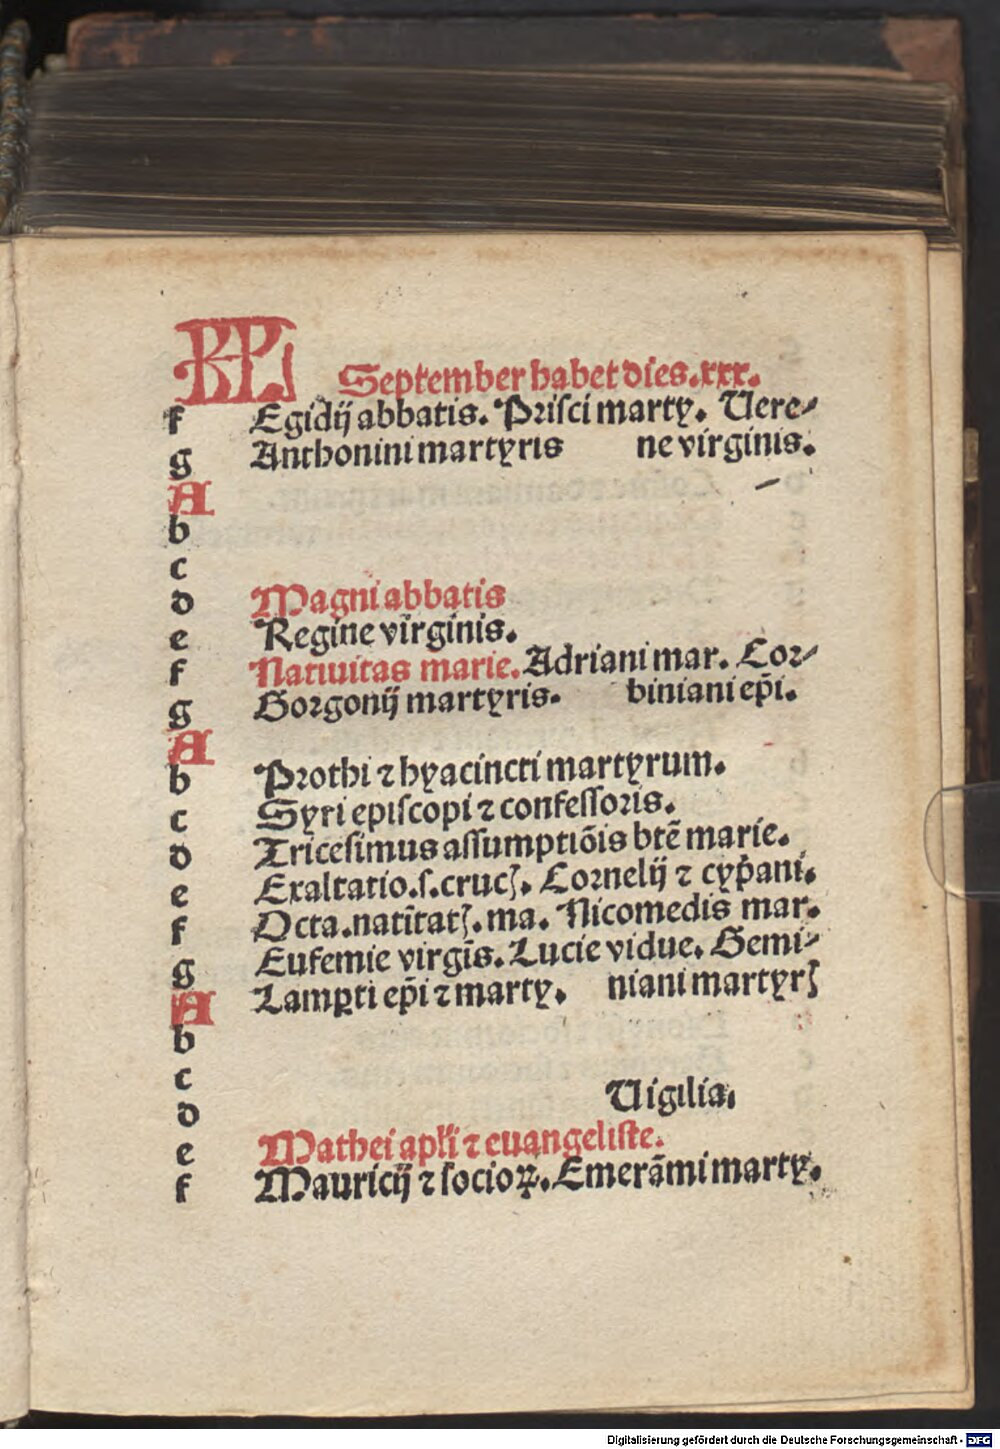 KL September habet dies.xxx.
f Egidij abbatis. Priſci marty. Uere⸗
g Anthonini martyris ne virginis.
A
b
c
d Magni abbatis
e Regine virginis.
f Natiuitas marie. Adriani mar. Cor⸗
g Gorgonij martyris. biniani ep̄i.
A
b Prothi ⁊ hyacincti martyrum.
c Syri epiſcopi ⁊ confeſſoris.
d Triceſimus aſſumptiōis btē marie.
e Exaltatio.ſ.crucꝭ. Cornelij ⁊ cyp̄ani.
f Octa.natīitatꝭ.ma. Nicomedis mar.
g Eufemie virgīs. Lucie vidue. Gemi⸗
A Lamꝑti ep̄i ⁊ marty. niani martyrꝭ
b
c
d Uigilia.
e Mathei apl̄i ⁊ euangeliſte.
f Mauricij ⁊ ſocioꝝ. Emerāmi marty.
Digitalisierung gefördert durch die Deutsche Forschungsgemeinschaft - DFG